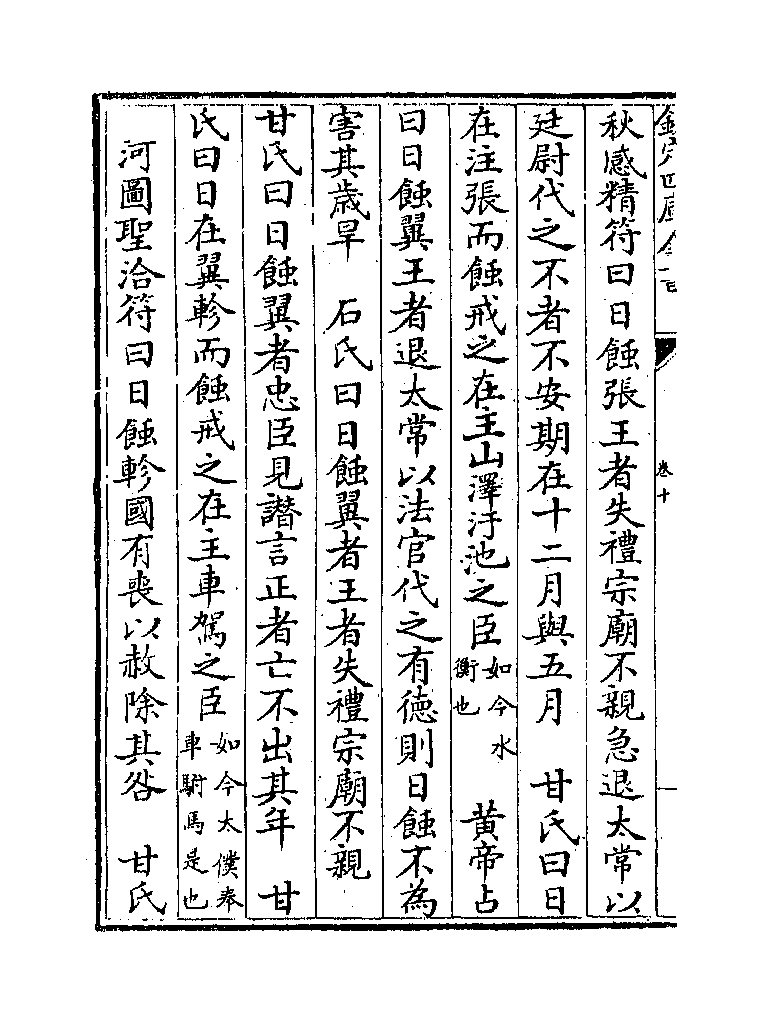 秋感精符曰日蝕張王者失禮宗廟不親急退太常以
廷尉代之不者不安期在十二月與五月　甘氏曰日
在注張而蝕戒之在主山澤汙池之臣如今水衡也　黄帝占
曰日蝕翼王者退太常以法官代之有徳則日蝕不為
害其歳旱　石氏曰日蝕翼者王者失禮宗廟不親
甘氏曰日蝕翼者忠臣見譖言正者亡不出其年　甘
氏曰日在翼軫而蝕戒之在主車駕之臣如今太僕奉車駙馬是也
河圖聖洽符曰日蝕軫國有喪以赦除其咎　甘氏
卷十